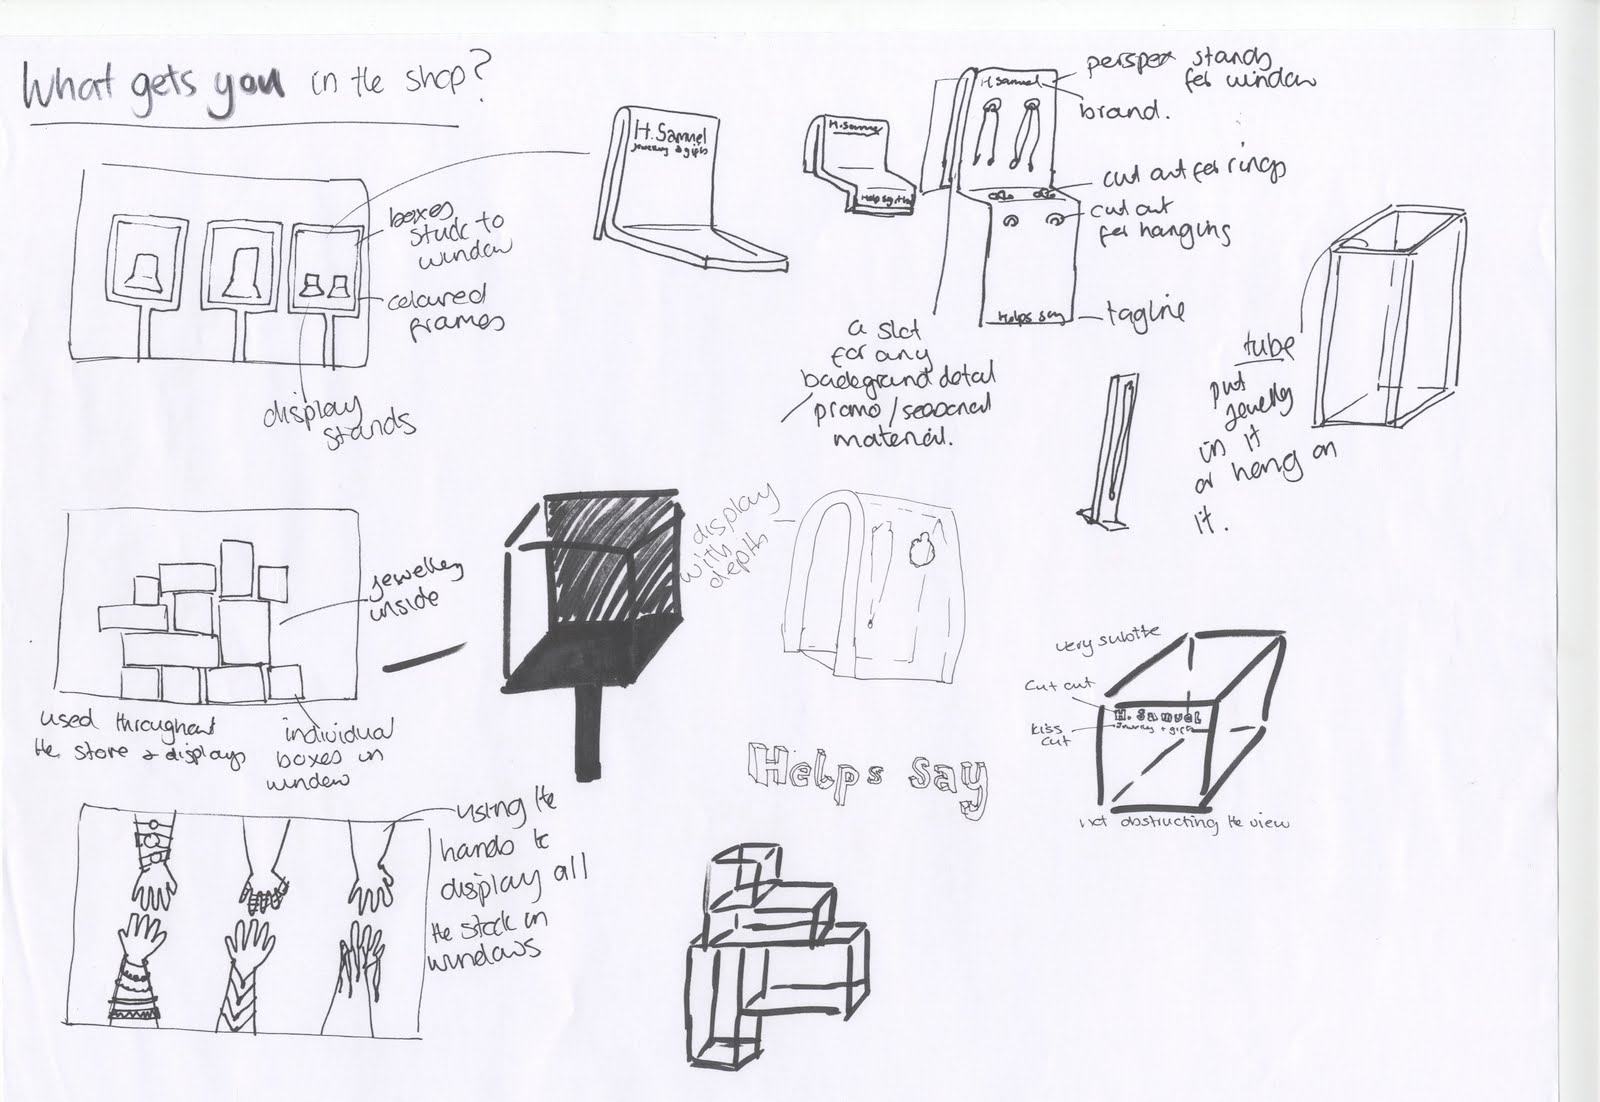 What gets you in the shop?
boxes
stuck to
window
coloured
frames
display
stands
H. Samuel
jewellery & gifts
H. Samuel
Helps say
H. Samuel
perspex stands
for window
brand.
cut out for rings
cut out
for hanging
Helps say
tagline
a slot
for any
background detail
promo / seasonal
material.
tube
put
jewellery
in it
or hang on
it.
jewellery
inside
used throughout
the store & displays
individual
boxes in
window
display
with
depth
very subtle
cut out
H. Samuel
Jewellery & gifts
kiss
cut
not obstructing the view
Helps say
using the
hands to
display all
the stock in
windows